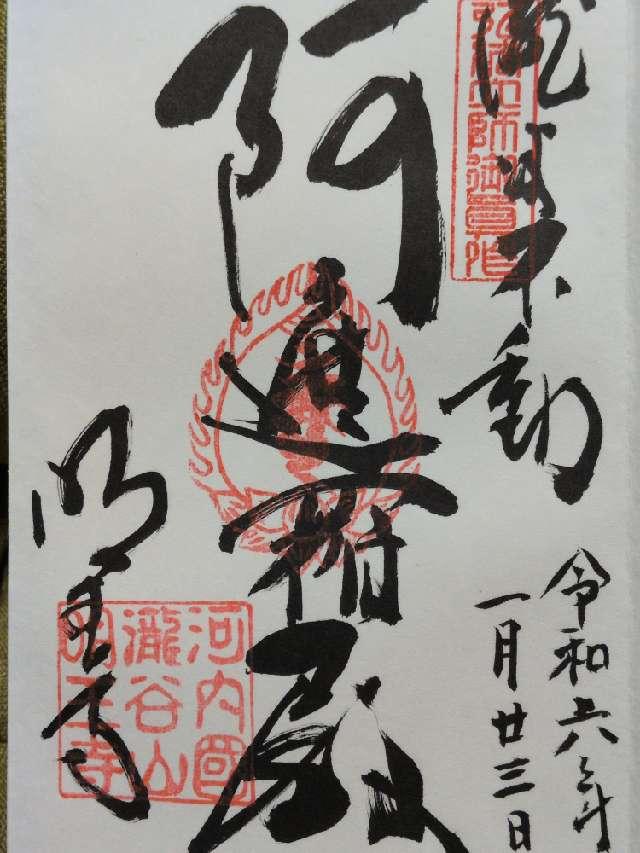 瀧谷不動
弘法大師御眞作
令和六年
一月廿三日
阿遮羅殿
明王寺
河内國
瀧谷山
明王寺